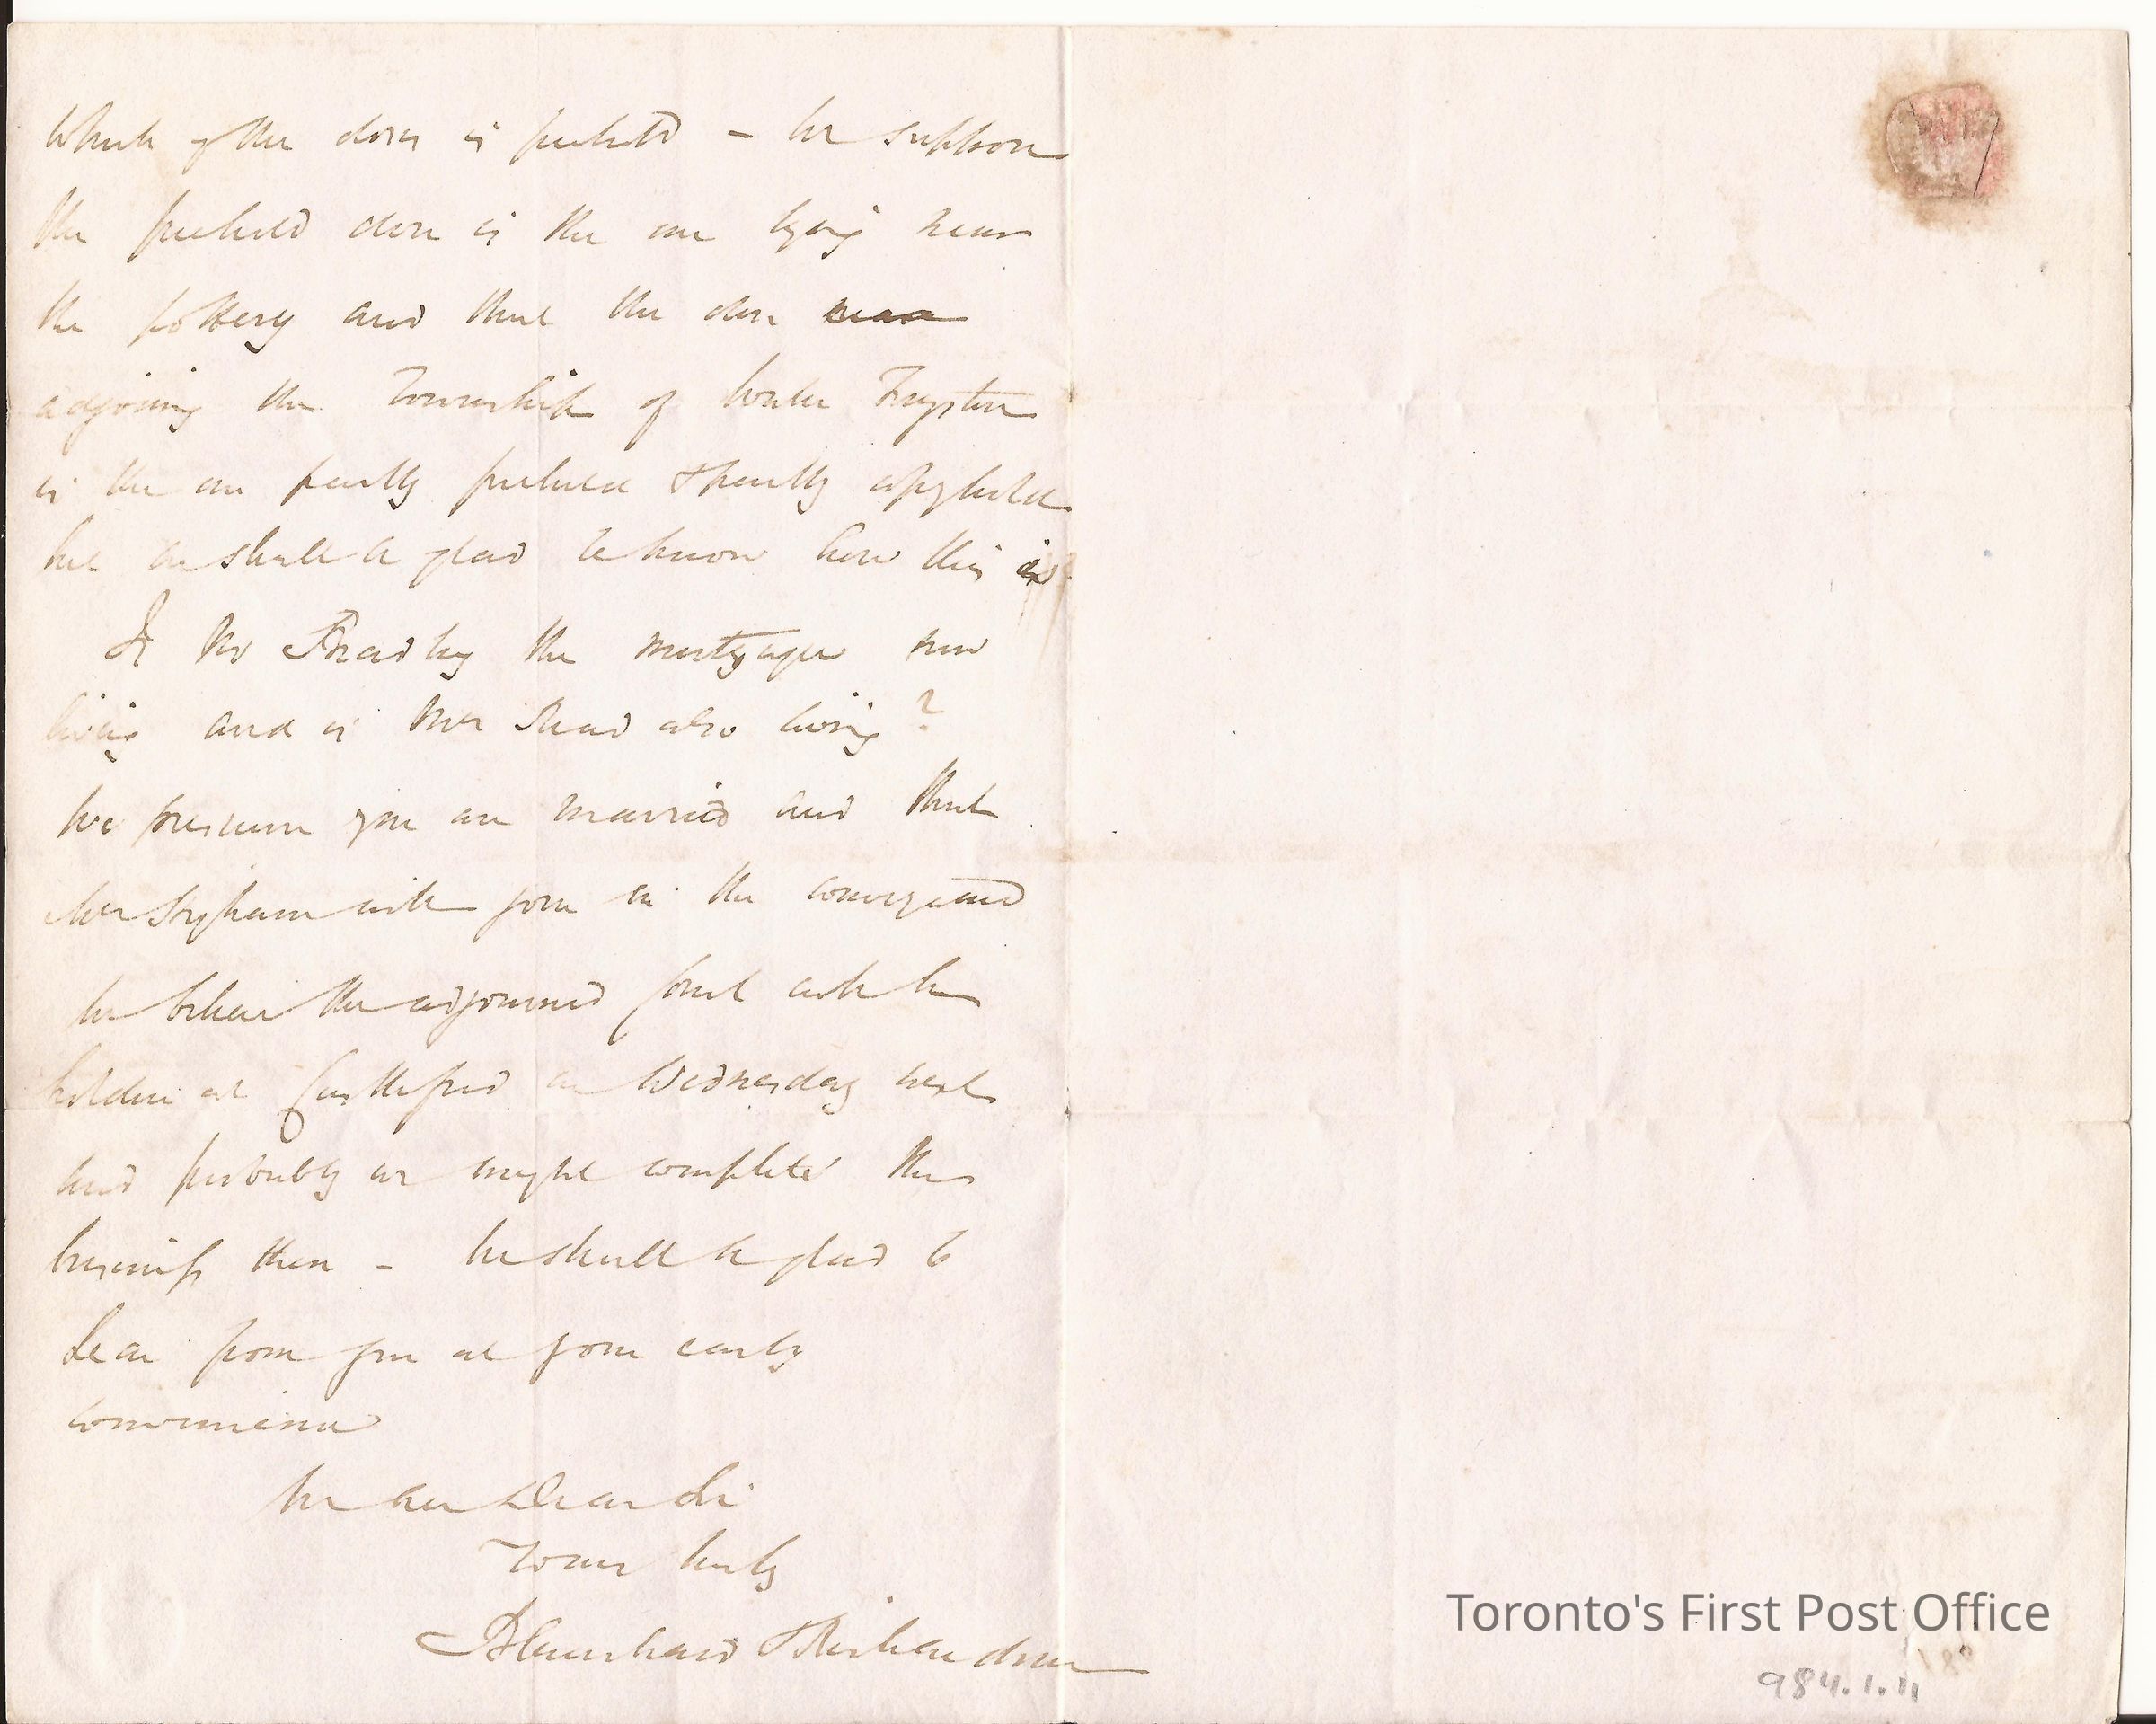 which of the closes is freehold - we suppose
the freehold close is the one lying near
the pottery and that the close near
adjoining the Township of Water Fryston
is the one partly freehold & partly copyhold
but we shall be glad to know how this is
Is Mr Bradley the mortgagee now
living and is Mrs also living?
We presume you are married and that
Mrs will join in the
We believe the adjourned Court will be
holden at Castleford on Wednesday next
and probably we might complete the
business then - We shall be glad to
hear from you at your early
convenience
We are Dear Sir
Yours truly
Blanshard & Richardson
Toronto's First Post Office
984.1.11